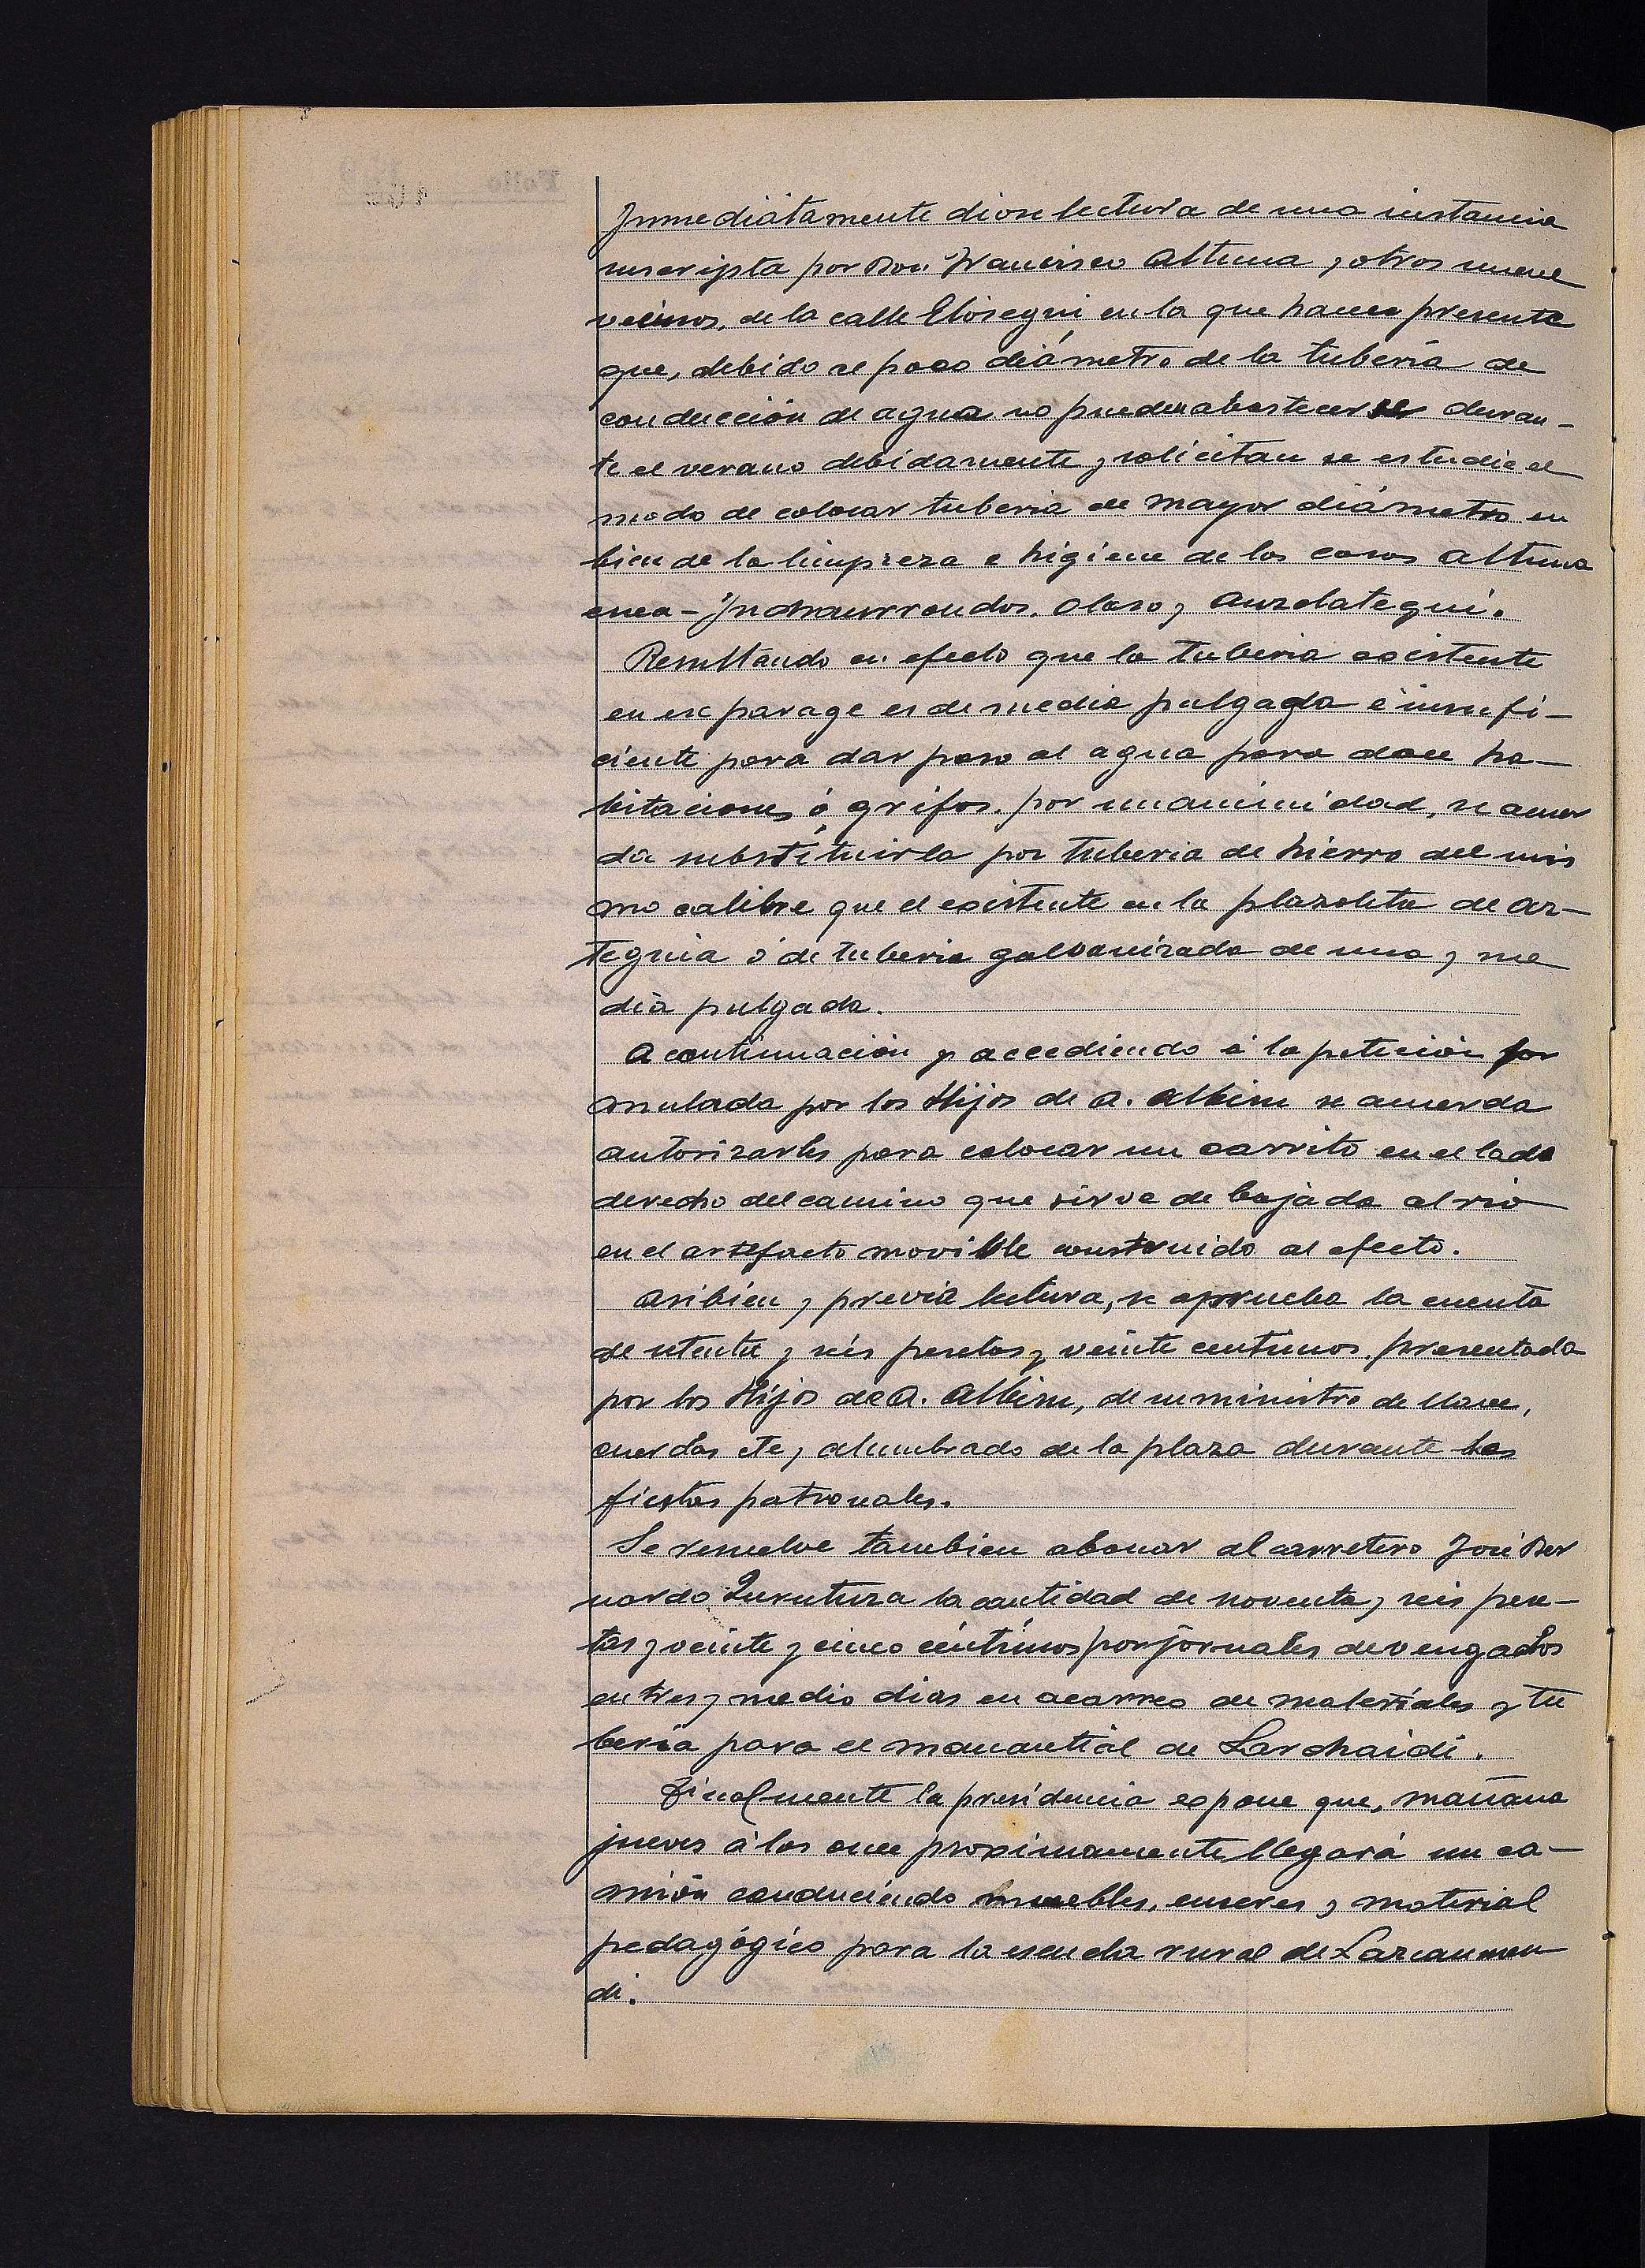 Inmediatamente diose lectura de una instancia
suscripta por Don Francisco Altuna y otros nueve
vecinos, de la calle Elosegui en la que hacen presente
que, debido al poco diámetro de la tubería de
conducción de agua no pueden abastecerse duran-
te el verano debidamente y solicitan se estudie el
modo de colocar tuberia de mayor diámetro en
bien de la limpieza e higiene de las casas Altuna
enea - Inchaurrondos, Olaso y Auzolategui.
Resultando en efecto que la tuberia existente
en ese parage es de media pulgada é insufi-
ciente para dar paso al agua para doce ha-
bitaciones ó grifos. por unanimidad, se acuer
da substituirla por tuberia de hierro del mis
mo calibre que el existente en la plazoleta de Ar-
teguia ó de tuberia galvanizada de una y me
dia pulgada.
A continuación y accediendo á la petición for
mulada por los Hijos de A. Albisu se acuerda
autorizarles para colocar un carrito en el lado
derecho del camino que sirve de bajada al rio
en el artefacto movible construido al efecto.
Asibien y previa lectura, se aprueba la cuenta
de setenta y seis pesetas y veinte centimos, presentada
por los Hijos de A. Albisu, de suministro de llaves,
cuerdas etc y alumbrado de la plaza durante las
fiestas patronales.
Se resuelve tambien abonar al carretero José Ber
nardo Zurutuza la cantidad de noventa y seis pese-
tas y veinte y cinco céntimos por jornales devengados
en tres y medio dias en acarreo de materiales y tu
bería para el manantial de Larchaidi.
Finalmente la presidencia expone que, mañana
jueves á las once proximamente llegará un ca-
mión conduciendo muebles, enseres y material
pedagógico para la escuela rural de Lazcanmen
di.